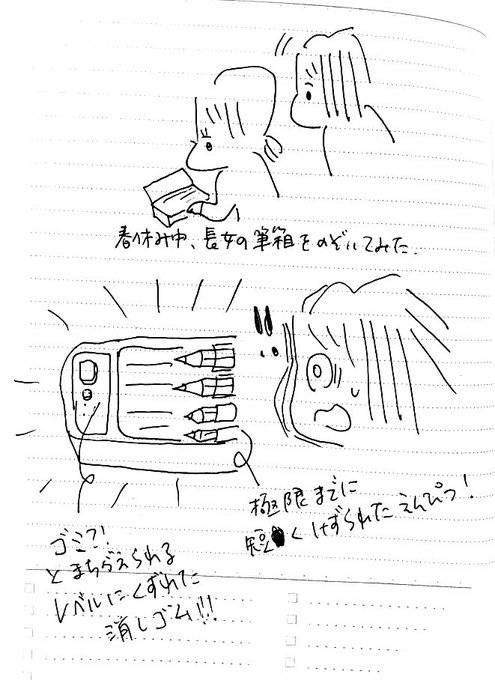 春休み中、長女の筆箱をのぞいてみた.
!!
極限までに
短くけずられたえんぴつ!
ゴミ?!
とまちがえられる
レベルにくずれた
消しゴム!!!